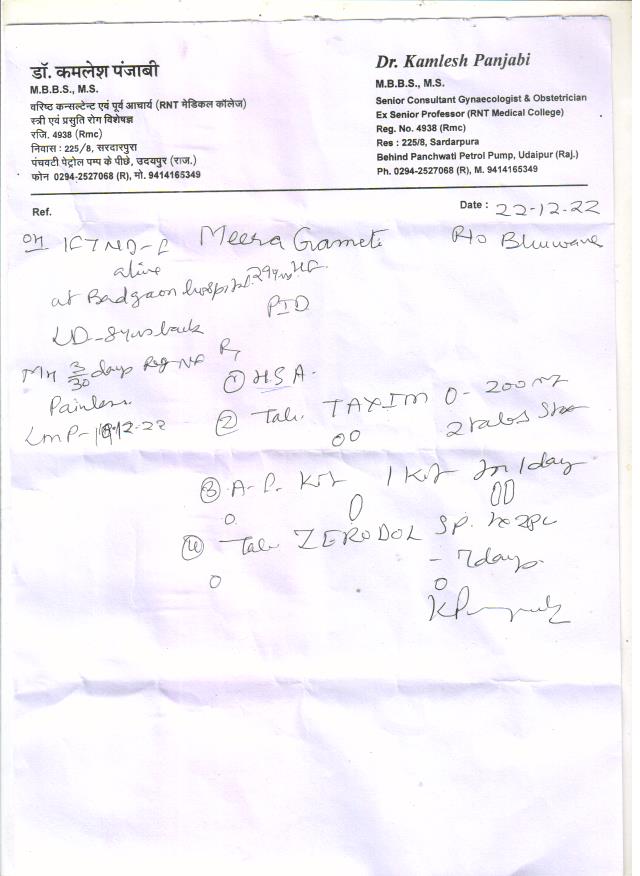 डॉ. कमलेश पंजाबी
M.B.B.S., M.S.
वरिष्ठ कन्सल्टेन्ट एवं पूर्व आचार्य (RNT मेडिकल कॉलेज)
स्त्री एवं प्रसुति रोग विशेषज्ञ
रजि. 4938 (Rmc)
निवास : 225/8, सरदारपुरा
पंचवटी पेट्रोल पम्प के पीछे, उदयपुर (राज.)
फोन 0294-2527068 (R), मो. 9414165349
Dr. Kamlesh Panjabi
M.B.B.S., M.S.
Senior Consultant Gynaecologist & Obstetrician
Ex Senior Professor (RNT Medical College)
Reg. No. 4938 (Rmc)
Res : 225/8, Sardarpura
Behind Panchwati Petrol Pump, Udaipur (Raj.)
Ph. 0294-2527068 (R), M. 9414165349
Ref.
Date : 22-12-22
Meera Gameti R/o Bhuwana
alive
at Badgaon hospital 29yrs
PID
LD - 8yrs back
MH 3/30 days Reg NF
Painless
LMP - 12-22
① HSA.
② Tab. TAXIM O - 200 mg
2 tabs
③ A-P. Kit 1 Kit 1 day
④ Tab ZERODOL SP.
- 7 days